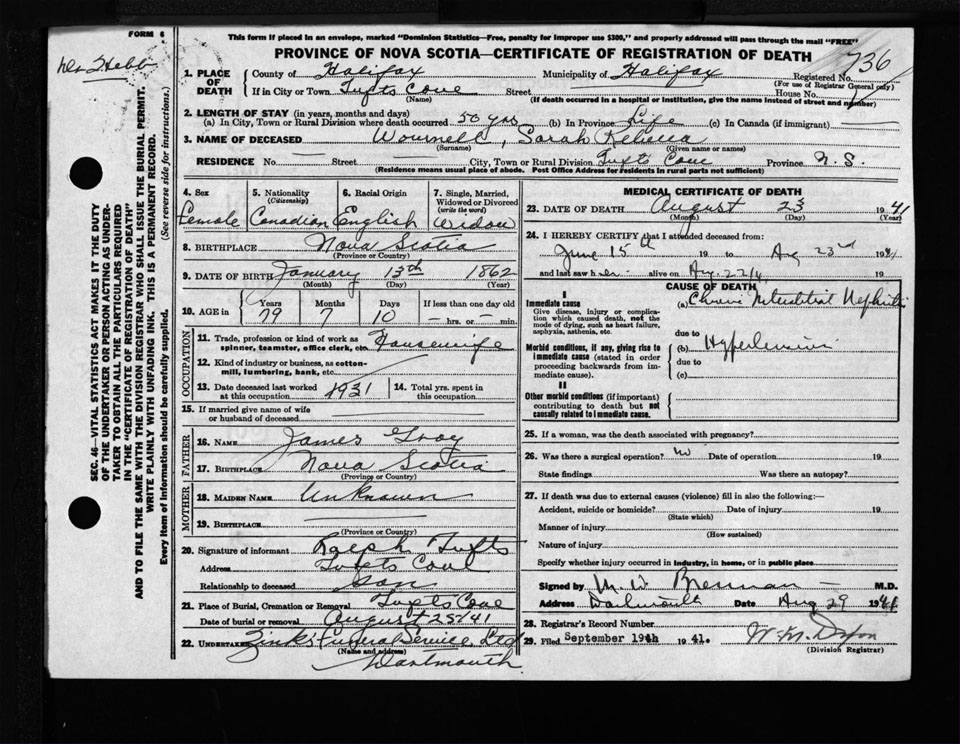 FORM 6
This form if placed in an envelope, marked "Dominion Statistics—Free, penalty for improper use $300," and properly addressed will pass through the mail "FREE"
PROVINCE OF NOVA SCOTIA—CERTIFICATE OF REGISTRATION OF DEATH
736
1. PLACE OF DEATH County of Halifax Municipality of Halifax Registered No.
(For use of Registrar General only)
If in City or Town Tufts Cove Street House No.
(Name) (If death occurred in a hospital or institution, give the name instead of street and number)
2. LENGTH OF STAY (in years, months and days)
(a) In City, Town or Rural Division where death occurred 50 yrs (b) In Province Life (c) In Canada (if immigrant)
3. NAME OF DECEASED Sarah Rebecca
(Surname) (Given name or names)
RESIDENCE No. Street City, Town or Rural Division Tufts Cove Province N.S.
(Residence means usual place of abode. Post Office Address for residents in rural parts not sufficient)
4. Sex 5. Nationality (Citizenship) 6. Racial Origin 7. Single, Married, Widowed or Divorced (write the word)
Female Canadian English Widow
8. BIRTHPLACE Nova Scotia
(Province or Country)
9. DATE OF BIRTH January 13th 1862
(Month) (Day) (Year)
10. AGE in Years Months Days If less than one day old
79 7 10 hrs. or min.
OCCUPATION
11. Trade, profession or kind of work as spinner, teamster, office clerk, etc. Housewife
12. Kind of industry or business, as cotton-mill, lumbering, bank, etc.
13. Date deceased last worked at this occupation 1931 14. Total yrs. spent in this occupation
15. If married give name of wife or husband of deceased
FATHER
16. NAME James Gray
17. BIRTHPLACE Nova Scotia
(Province or Country)
MOTHER
18. MAIDEN NAME Unknown
19. BIRTHPLACE
(Province or Country)
20. Signature of informant Ralph Tufts
Address Tufts Cove
Relationship to deceased Son
21. Place of Burial, Cremation or Removal Tufts Cove
Date of burial or removal August 25th/41
22. UNDERTAKER Zink's Funeral Service Ltd
(Name and address)
Dartmouth
MEDICAL CERTIFICATE OF DEATH
23. DATE OF DEATH August 23 1941
(Month) (Day) (Year)
24. I HEREBY CERTIFY that I attended deceased from:
June 15th 19 to Aug 23rd 1941
and last saw her alive on Aug. 22/41 19
CAUSE OF DEATH
I
Immediate cause (a) Chronic Interstitial Nephritis
Give disease, injury or complication which caused death, not the mode of dying, such as heart failure, asphyxia, asthenia, etc.
due to
Morbid conditions, if any, giving rise to immediate cause (stated in order proceeding backwards from immediate cause). (b) Hypertension
due to
(c)
II
Other morbid conditions (if important) contributing to death but not causally related to immediate cause.
25. If a woman, was the death associated with pregnancy?
26. Was there a surgical operation? no Date of operation 19
State findings Was there an autopsy?
27. If death was due to external causes (violence) fill in also the following:—
Accident, suicide or homicide? Date of injury 19
(State which)
Manner of injury
(How sustained)
Nature of injury
Specify whether injury occurred in industry, in home, or in public place
Signed by M. W. Brennan M.D.
Address Dartmouth Date Aug 29 1941
28. Registrar's Record Number
29. Filed September 19th 1941.
(Division Registrar)
SEC. 46—VITAL STATISTICS ACT MAKES IT THE DUTY
OF THE UNDERTAKER OR PERSON ACTING AS UNDER-
TAKER TO OBTAIN ALL THE PARTICULARS REQUIRED
IN THE "CERTIFICATE OF REGISTRATION OF DEATH"
AND TO FILE THE SAME WITH THE DIVISION REGISTRAR WHO SHALL ISSUE THE BURIAL PERMIT.
WRITE PLAINLY WITH UNFADING INK. THIS IS A PERMANENT RECORD.
Every item of information should be carefully supplied. (See reverse side for instructions.)